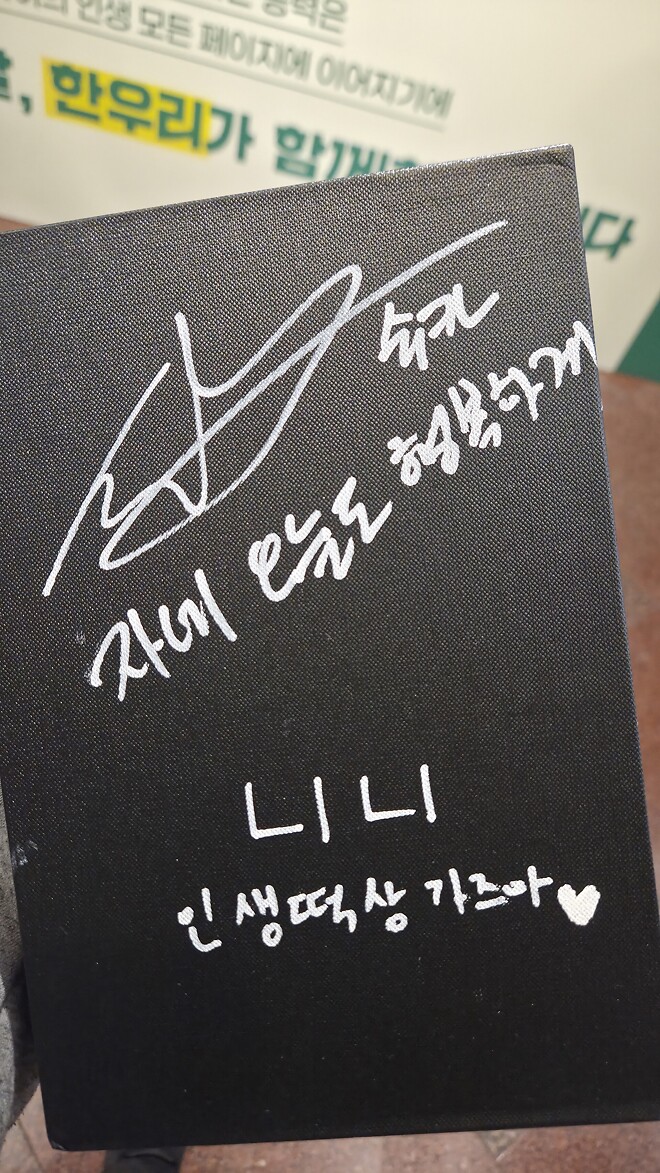 인생 모든 페이지에 이어지기에
한우리가 함께
니다
자네 오늘도 행복하게
니니
인생떡상 가즈아♥